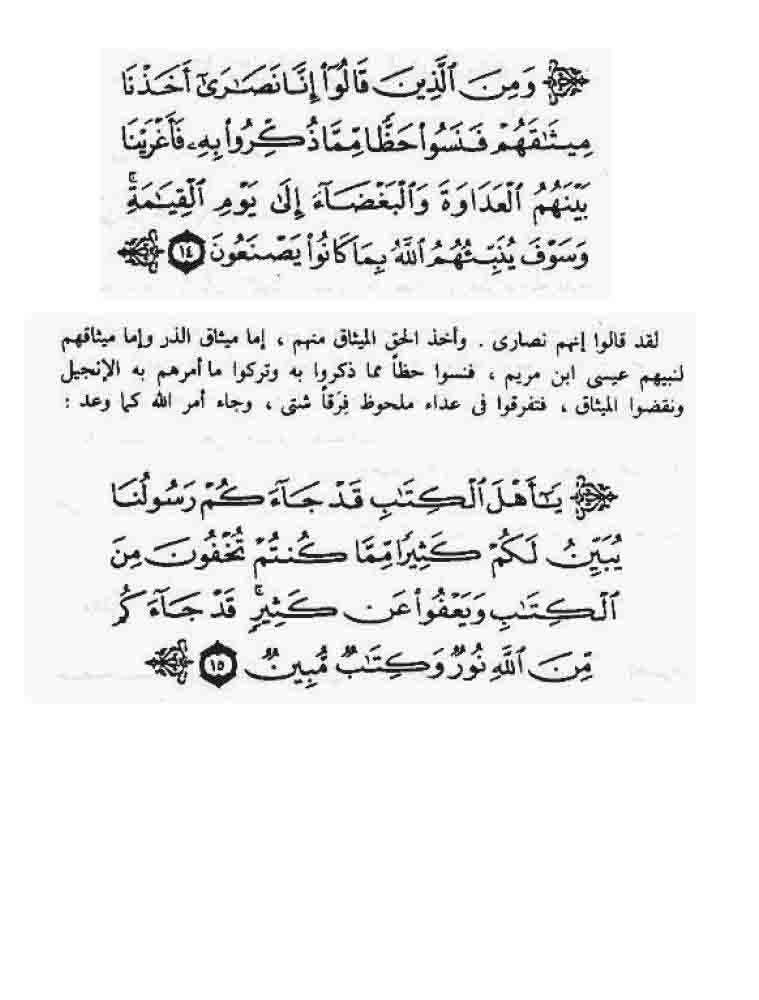 وَمِنَ ٱلَّذِينَ قَالُوٓا۟ إِنَّا نَصَـٰرَىٰٓ أَخَذْنَا
مِيثَـٰقَهُمْ فَنَسُوا۟ حَظًّا مِّمَّا ذُكِّرُوا۟ بِهِۦ فَأَغْرَيْنَا
بَيْنَهُمُ ٱلْعَدَاوَةَ وَٱلْبَغْضَآءَ إِلَىٰ يَوْمِ ٱلْقِيَـٰمَةِ ۚ
وَسَوْفَ يُنَبِّئُهُمُ ٱللَّهُ بِمَا كَانُوا۟ يَصْنَعُونَ ١٤
لقد قالوا إنهم نصارى . وأخذ الحق الميثاق منهم ، إما ميثاق الذر وإما ميثاقهم
لنبيهم عيسى ابن مريم ، فنسوا حظاً مما ذكروا به وتركوا ما أمرهم به الإنجيل
ونقضوا الميثاق ، فتفرقوا فى عداء ملحوظ فِرَقاً شتى ، وجاء أمر الله كما وعد :
يَـٰٓأَهْلَ ٱلْكِتَـٰبِ قَدْ جَآءَكُمْ رَسُولُنَا
يُبَيِّنُ لَكُمْ كَثِيرًا مِّمَّا كُنتُمْ تُخْفُونَ مِنَ
ٱلْكِتَـٰبِ وَيَعْفُوا۟ عَن كَثِيرٍ ۚ قَدْ جَآءَكُم
مِّنَ ٱللَّهِ نُورٌ وَكِتَـٰبٌ مُّبِينٌ ١٥